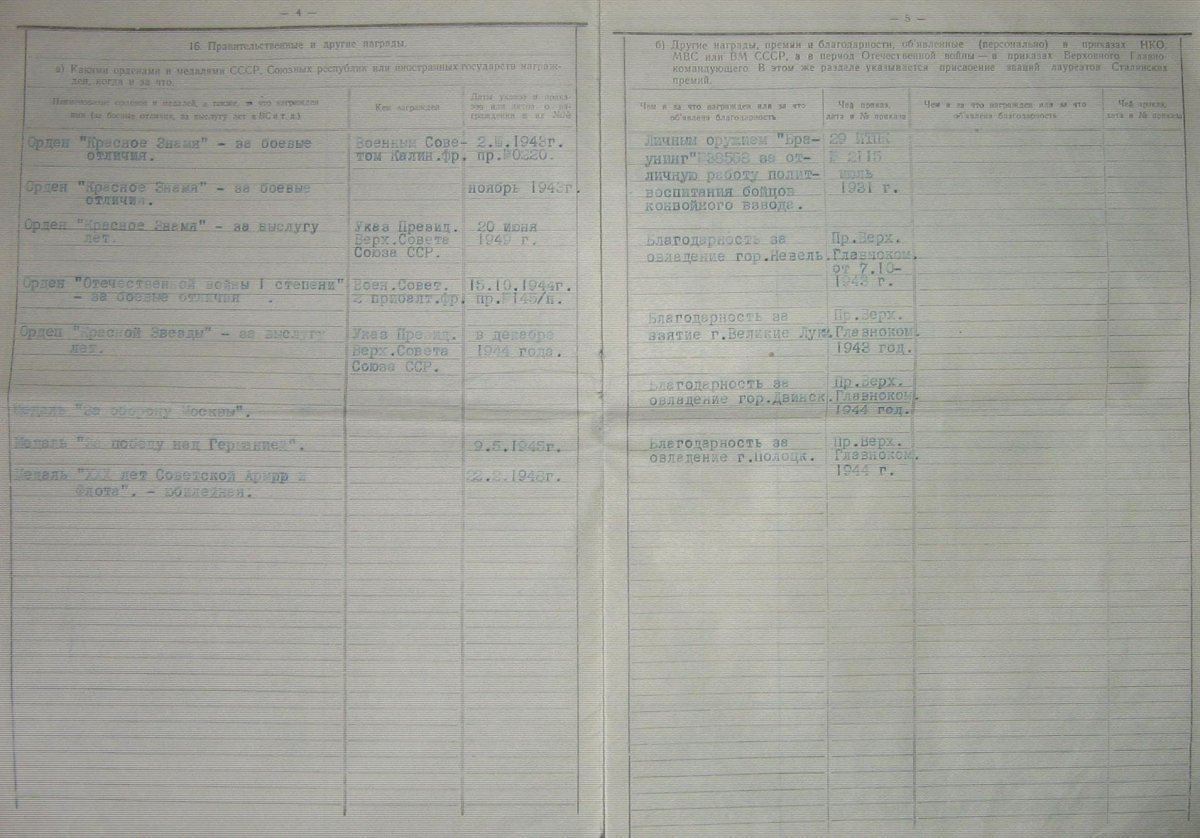 — 4 —
16. Правительственные и другие награды.
а) Какими орденами и медалями СССР, Союзных республик или иностранных государств награж-
ден, когда и за что.
Наименование орденов и медалей, а также, за что награжден
(за боевые отличия, за выслугу лет в ВС и т. д.)
Кем награжден
Даты указов и прика-
зов или актов о на-
граждении и их №№
Орден "Красное Знамя" - за боевые
отличия.
Военным Сове-
том Калин.фр.
2.Ш.1943г.
пр.№0220.
Орден "Красное Знамя" - за боевые
отличия.
ноябрь 1943г.
Орден "Красное Знамя" - за выслугу
лет.
Указ Презид.
Верх.Совета
Союза ССР.
20 июня
1949 г.
Орден "Отечественной войны I степени"
- за боевые отличия .
Воен.Совет.
2 прибалт.фр.
15.10.1944г.
пр.№145/н.
Орден "Красной Звезды" - за выслугу
лет.
Указ Презид.
Верх.Совета
Союза ССР.
в декабре
1944 года.
Медаль "За оборону Москвы".
Медаль "За победу над Германией".
9.5.1945г.
Медаль "XXX лет Советской Армии и
Флота". - юбилейная.
22.2.1948г.
— 5 —
б) Другие награды, премии и благодарности, об'явленные (персонально) в приказах НКО,
МВС или ВМ СССР, а в период Отечественной войны — в приказах Верховного Главно-
командующего. В этом же разделе указывается присвоение званий лауреатов Сталинских
премий.
Чем и за что награжден или за что
об'явлена благодарность
Чей приказ,
дата и № приказа
Чем и за что награжден или за что
об'явлена благодарность
Чей приказ,
дата и № приказа
Личным оружием "Бра-
унинг" за от-
личную работу полит-
воспитания бойцов
конвойного взвода.
29
№ 2115
июль
1931 г.
Благодарность за
овладение гор.Невель.
Пр.Верх.
Главноком.
от 7.10-
1943 г.
Благодарность за
взятие г.Великие Луки.
Пр.Верх.
Главноком.
1943 год.
Благодарность за
овладение гор.Двинск.
Пр.Верх.
Главноком.
1944 год.
Благодарность за
овладение г.Полоцк.
Пр.Верх.
Главноком.
1944 г.